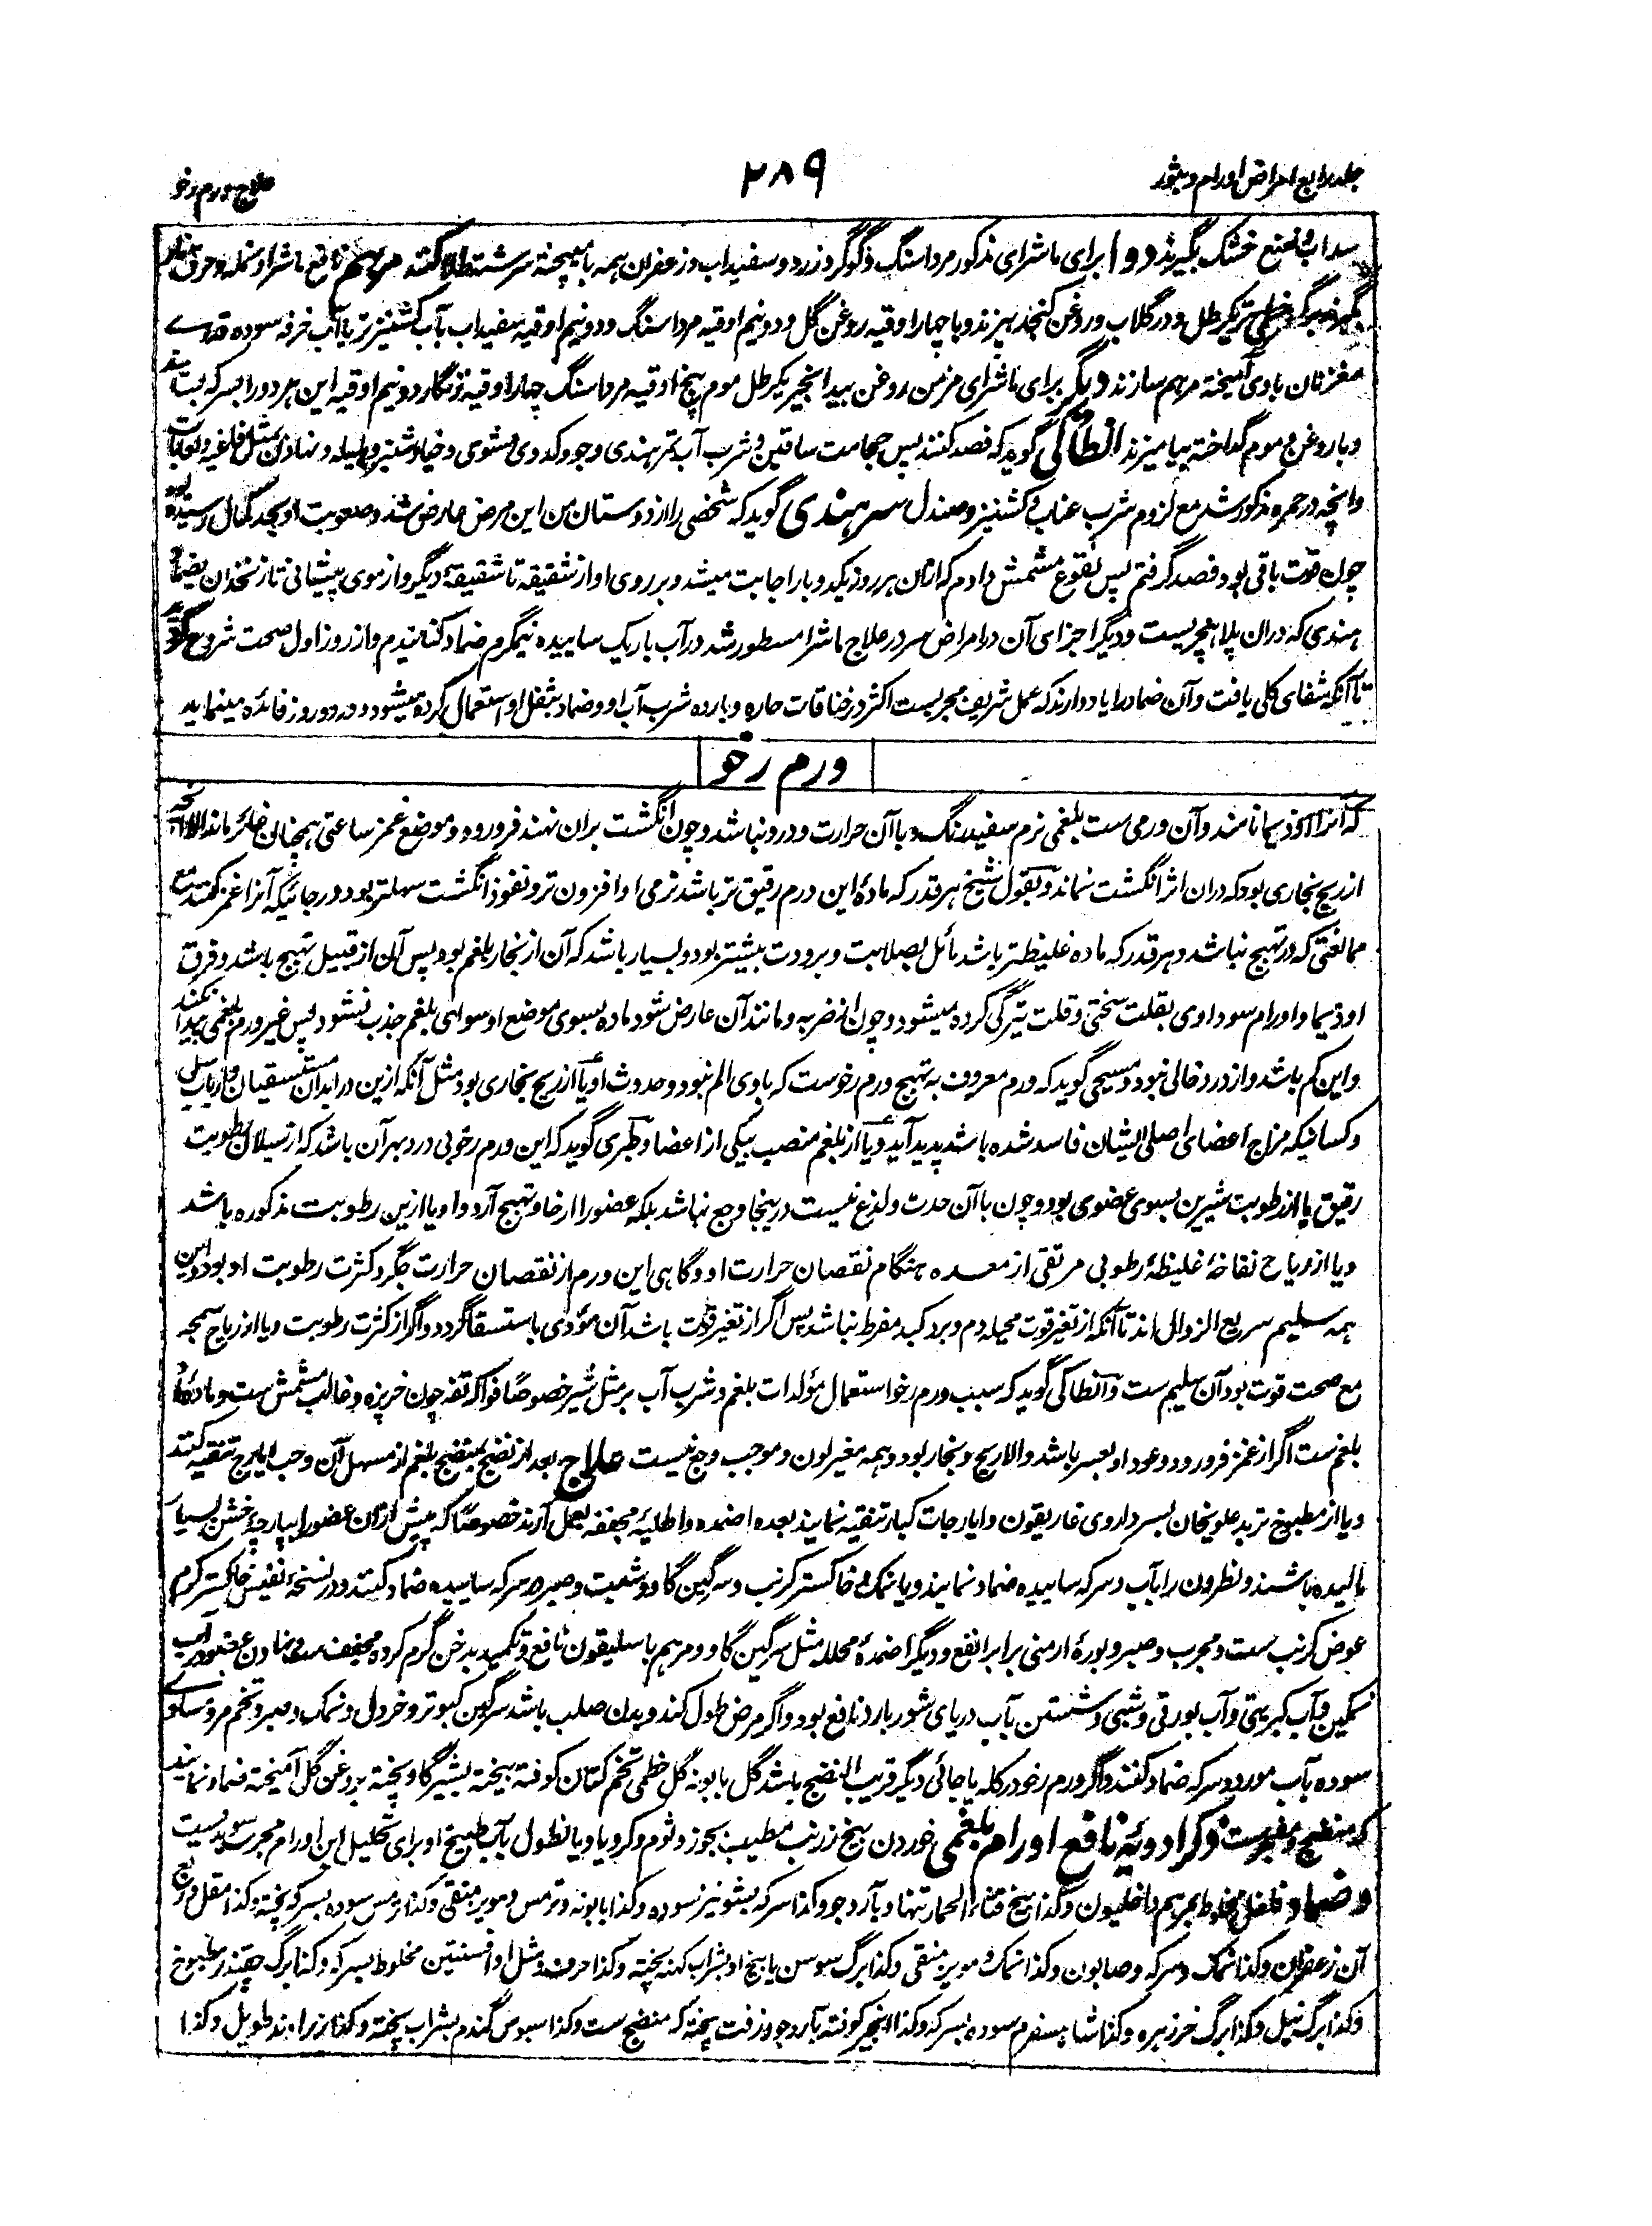 جلد رابع امراض اورام و بثور
۲۸۹
علاج ورم رخو
سداب و نعنع خشک بگیرند دوا برای ماشرای مذکور مرداسنگ و گوگرد زرد و سفیداب و زعفران همه با میپخته سرشته طلا کنند مرهم نافع ماشرا و نمله و حرق نار
بگیرند برگ خطمی تر یکرطل و در گلاب و روغن کنجد بپزند و با چهار اوقیه روغن گل و دو نیم اوقیه مرداسنگ و دو نیم اوقیه سفیداب بآب کشنیز تر یا آب خرفه سوده قدری
مغز نان با وی آمیخته مرهم سازند دیگر برای ماشرای مزمن روغن بیدانجیر یکرطل موم پنج اوقیه مرداسنگ چهار اوقیه زنگار دو نیم اوقیه این هر دو را بسرکه بسایند
و با روغن و موم گداخته بیامیزند انطاکی گوید که فصد کنند پس حجامت ساقین و شرب آب تمر هندی و جو و کدوی مشوی و خیارشنبر و هلیله و نهادن مثل فاغیه و لعابات
و آنچه در حمره مذکور شد مع لزوم شرب عناب و کشنیز و صندل سرهندی گوید که شخصی را از دوستان من این مرض عارض شد و صعوبت او بحد کمال رسیده بود
چون قوت باقی بود فصد گرفتم پس نقوع مشمش دادم که ازان هر روز یکدو بار اجابت میشد و بر روی او از شقیقه تا شقیقه دیگر و از موی پیشانی تا زنخدان بضماد
هندی که دران پلا پنچر یست و دیگر اجزای آن در امراض سر در علاج ماشرا مسطور شد در آب باریک ساییده نیمگرم ضماد کنانیدم و از روز اول صحت شروع گردید
تا آنکه شفای کلی یافت و آن ضماد را یاد دارند که عمل شریف مجربست اکثر در خناقات حاره و بارده شرب آب او و ضماد بثفل او استعمال کرده میشود و در دو روز فائده مینماید
ورم رخو
که آنرا اوذیما نامند و آن ورمی ست بلغمی نرم سفید رنگ و با آن حرارت و درد نباشد و چون انگشت بران نهند فرو رود و موضع غمز ساعتی همچنان غائر ماند الا آنچه
از ریح بخاری بود که دران اثر انگشت نماند و بقول شیخ هر قدر که ماده این ورم رقیق تر باشد نرمی او افزون تر و نفوذ انگشت سهلتر بود و در جائیکه آنرا غمز کنند
ممانعتی که در تهیج نباشد و هر قدر که ماده غلیظتر باشد مائل بصلابت و برودت بیشتر بود و بسیار باشد که آن از بخار بلغم بود پس آن از قبیل تهیج باشد و فرق
اوذیما و اورام سوداوی بقلت سختی و قلت تیرگی کرده میشود و چون از ضربه و مانند آن عارض شود ماده بسوی موضع او سوای بلغم جذب نشود پس غیر ورم بلغمی پیدا نکند
و این کم باشد و از درد خالی نبود و مسیحی گوید که ورم معروف به تهیج ورم رخوست که با وی الم نبود و حدوث او یا از ریح بخاری بود مثل آنکه ازین در ابدان مستسقیان و ارباب سل
و کسانیکه مزاج اعضای اصلی ایشان فاسد شده باشد پدید آید و یا از بلغم منصب بیکی از اعضا و طبری گوید که این ورم رخو بی درد بهر آن باشد که از سیلان رطوبت
رقیق یا از رطوبت شیرین بسوی عضوی بود و چون با آن حدت و لذع نیست درینجا وجع نباشد بلکه عضو را ارخا و تهیج آرد و او یا ازین رطوبت مذکوره باشد
و یا از ریاح نفاخه غلیظه رطوبی مرتقی از معده هنگام نقصان حرارت او و گاهی این ورم از نقصان حرارت جگر و کثرت رطوبت او بود و این
همه سلیم سریع الزوال اند تا آنکه از تغیر قوت محیله دم و برد کبد مفرط نباشد پس اگر از تغیر قوت باشد آن مؤدی باستسقا گردد و اگر از کثرت رطوبت و یا از ریاح سمجه
مع صحت قوت بود آن سلیم ست و انطاکی گوید که سبب ورم رخو استعمال مولدات بلغم و شرب آب بر مثل شیر خصوصا فواکه تفه چون خربزه و غالب مشمش ست و ماده او
بلغم ست اگر از غمز فرو رود و عود او بعسر باشد و الا ریح و بخار بود و همه مغیر لون و موجب وجع نیست علاج بعد از نضج بمنضج بلغم از مسهل آن و حب ایارج تنقیه کنند
و یا از مطبوخ تربد علویخان بسر داروی غاریقون و ایارجات کبار تنقیه نمایند بعده اضمده و اطلیه مجففه بعمل آرند خصوصا که پیش ازان عضو را بپارچه خشن بسیار
مالیده باشند و نطرون را بآب و سرکه ساییده ضماد نمایند و یا نمک و خاکستر کرنب و سرگین گاو و شبت و صبر در سرکه ساییده ضماد کنند و در نسخه نفیس خاکستر کرم
عوض کرنب ست و مجرب و صبر و بوره ارمنی برابر انفع و دیگر اضمده محلله مثل سرگین گاو و مرهم باسلیقون نافع و تکمید بدخن گرم کرده مجفف ست و نهادن عضو در آب
نمکین و آب کبریتی و آب بورقی و شبی و شستن بآب دریای شور بارد نافع بود و اگر مرض طول کند و بدن صلب باشد سرگین کبوتر و خردل و نمک و صبر و تخم مرو مساوی
سوده بآب مورد و سرکه ضماد کنند و اگر ورم رخو در کله یا جائی دیگر قریب النضج باشد گل بابونه گل خطمی تخم کتان کوفته بیخته بشیر گاو پخته بروغن گل آمیخته ضماد نمایند
که منضج و مفجرست ذکر ادویه نافع اورام بلغمی خوردن بیخ زرنب مطیب بجوز و ثوم و کرویا و یا نطول بآب طبیخ او برای تحلیل این اورام مجرب سویدیست
و ضماد فلفل مخلوط بمرهم داخلیون و کذا بیخ قثاء الحمار تنها و بآرد جو و کذا سرکه بشونیز سوده و کذا بابونه و ترمس و مویز منقی و کذا ترمس سوده بسرکه پخته و کذا مقل و ربع
آن زعفران و کذا نمک و سرکه و صابون و کذا نمک و مویز منقی و کذا برگ سوسن یا بیخ او بشراب کهنه پخته و کذا حرف و مثل او افسنتین مخلوط بسرکه و کذا برگ چقندر مطبوخ
و کذا برگ نیل و کذا برگ خرزهره و کذا شاهسفرم سوده بسرکه و کذا انجیر کوفته بآرد جو و زفت پخته که منضج ست و کذا سبوس گندم بشراب پخته و کذا زراوند طویل و کذا